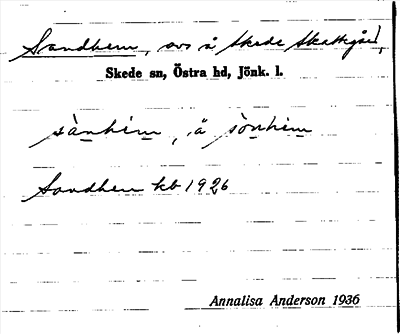 Sandhem, avs å Skede Skattegård,
Skede sn, Östra hd, Jönk. l.
sànhèm, å sònhèm
Sandhem kb 1926
Annalisa Anderson 1936